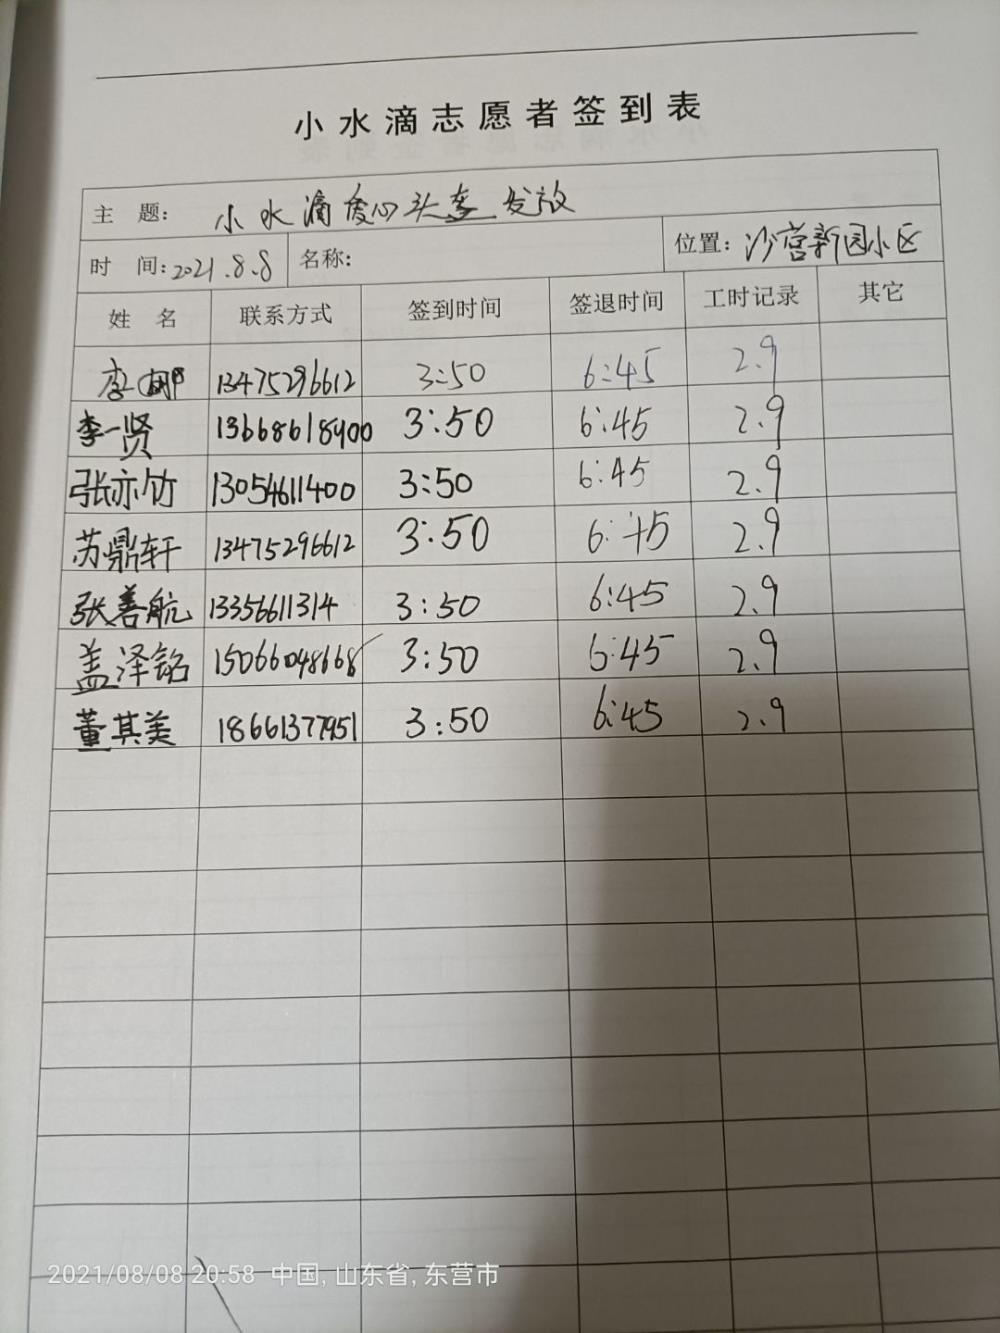 小水滴志愿者签到表
主 题: 小水滴爱心头套发放
时 间:2021.8.8 名称: 位置:沙营新园小区
姓 名 联系方式 签到时间 签退时间 工时记录 其它
李娜 13475296612 3:50 6:45 2.9
李一贤 13668618900 3:50 6:45 2.9
张亦竹 13054611400 3:50 6:45 2.9
苏鼎轩 13475296612 3:50 6:45 2.9
张善航 13356611314 3:50 6:45 2.9
盖泽铭 15066048668 3:50 6:45 2.9
董其美 18661377951 3:50 6:45 2.9
2021/08/08 20:58 中国, 山东省, 东营市